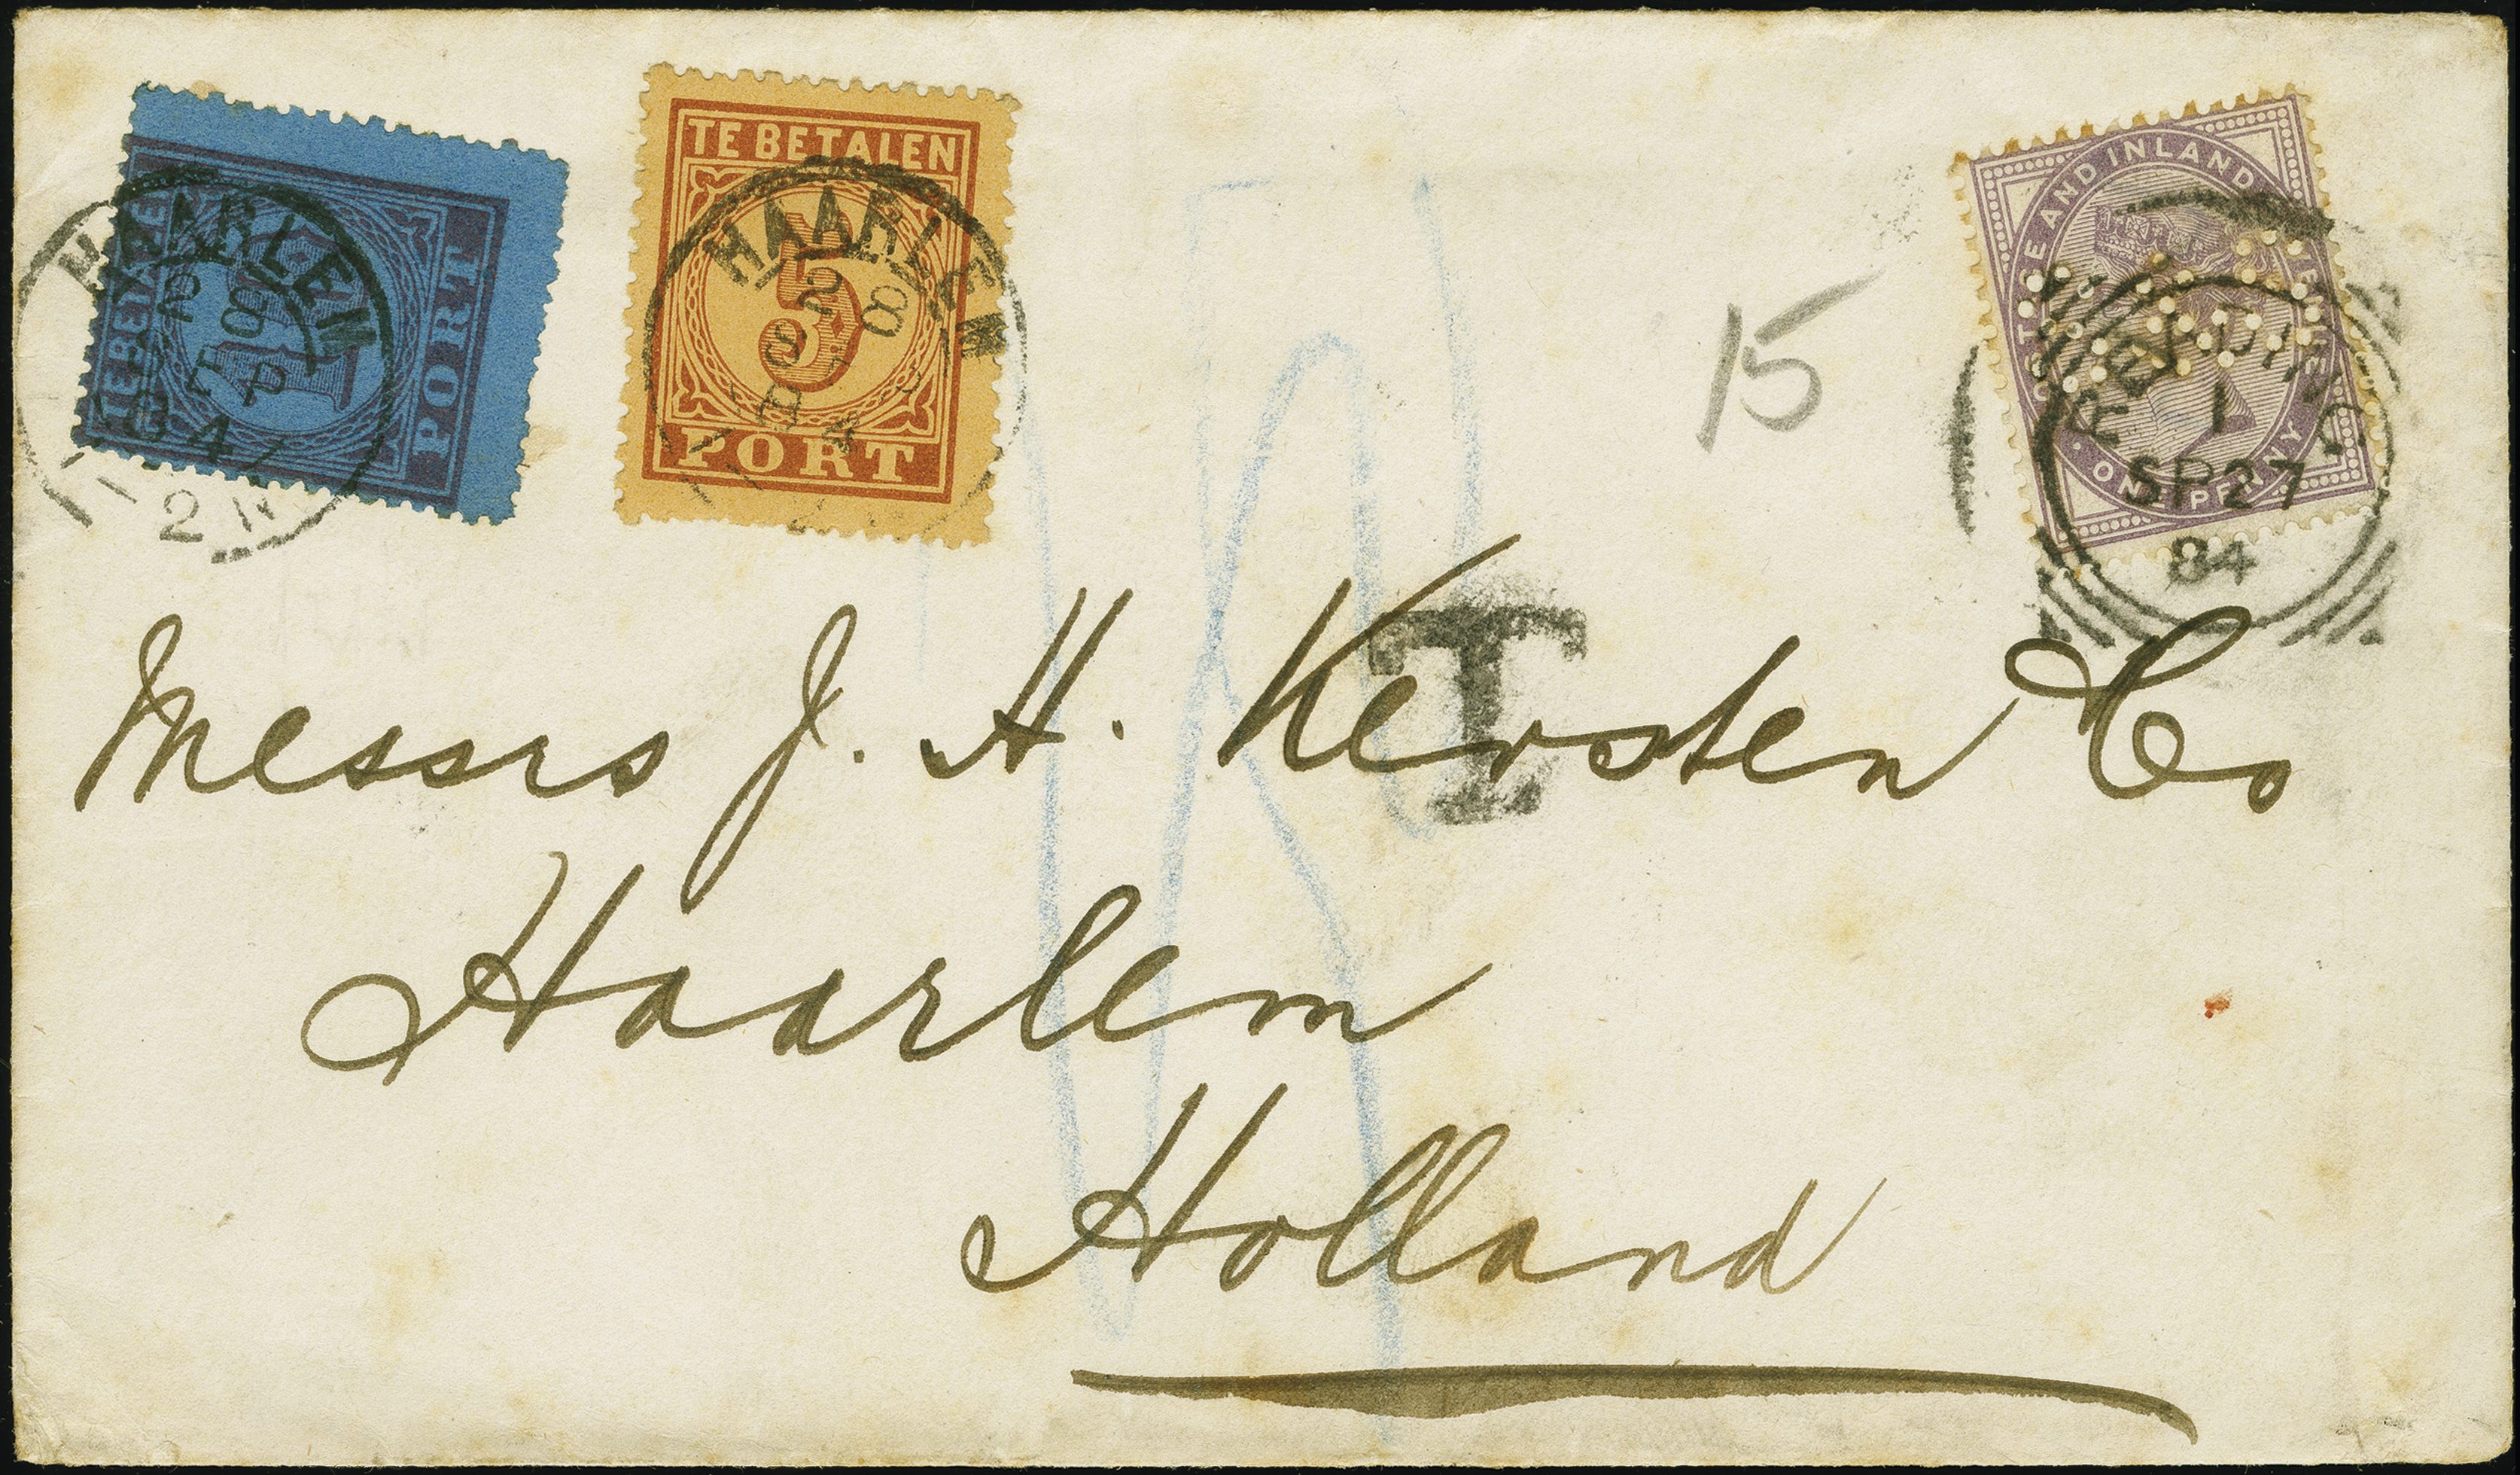 TE BETALEN
PORT
HAARLEM
28
SEP
84
2N
TE BETALEN
5
PORT
HAARLEM
28
POSTAGE AND INLAND REVENUE
ONE PENNY
READING
1
SP 27
84
15
T
Messrs J. H. Kersten Co
Haarlem
Holland